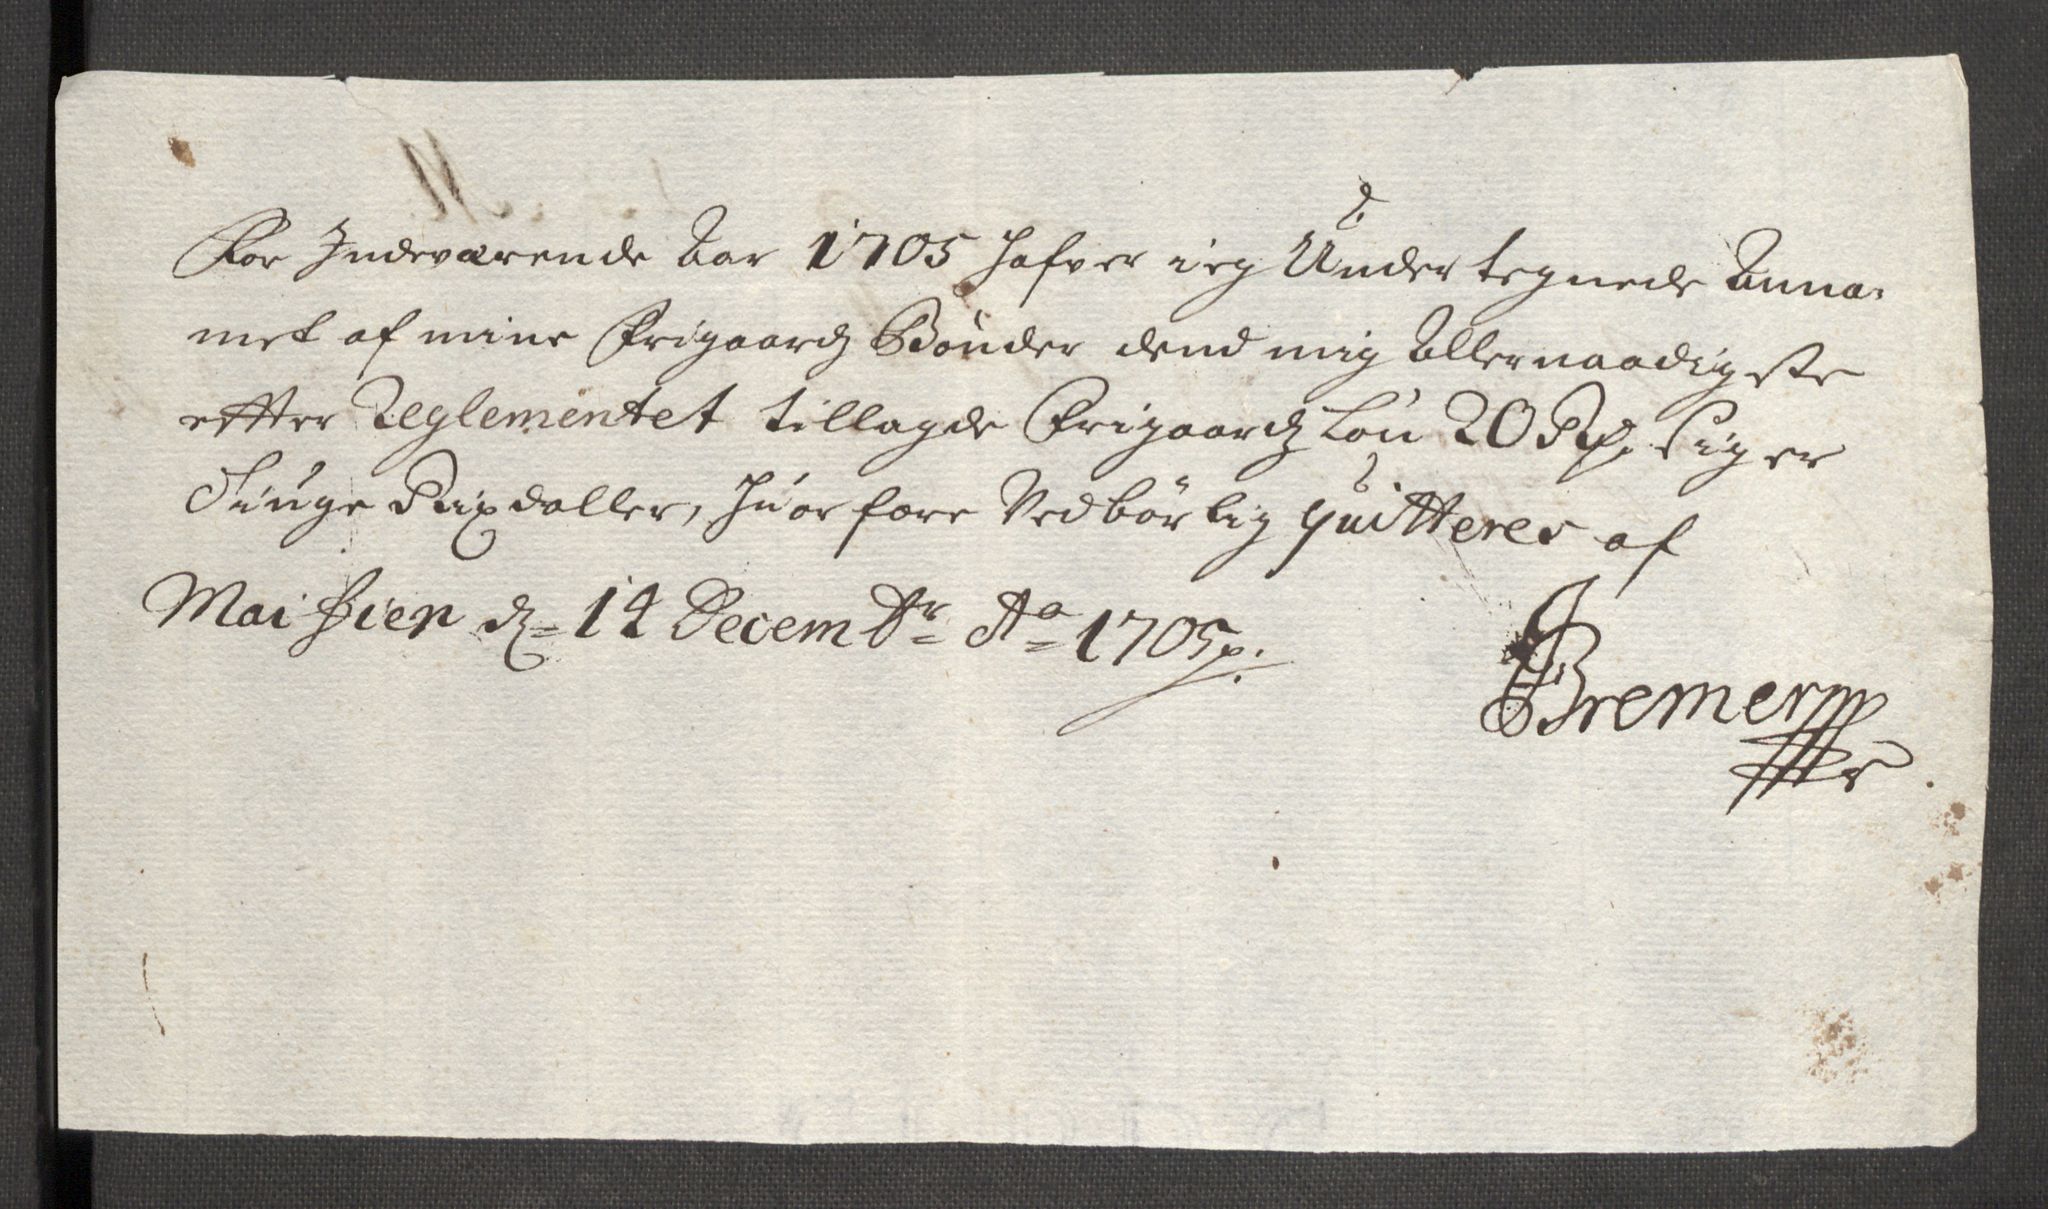 For Indeværende Aar 1705 hafver ieg Undertegnede Anna-
met af mine Frigaards Bønder dend mig Allernaadigste
effter Reglementet tillagde Frigaards Løn 20 Rd, siger
Tiuge Rixdaller, huorfore Vedbørlig quitteres af
d: 14 Decembr Ao 1705 p:
Bremer